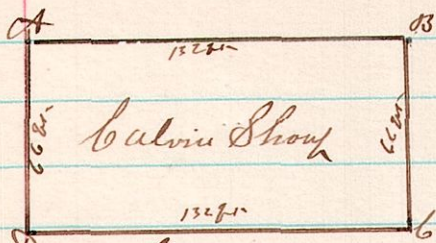 A B
132 ft
66 ft Calvin Shoup 66 ft
132 ft
D C